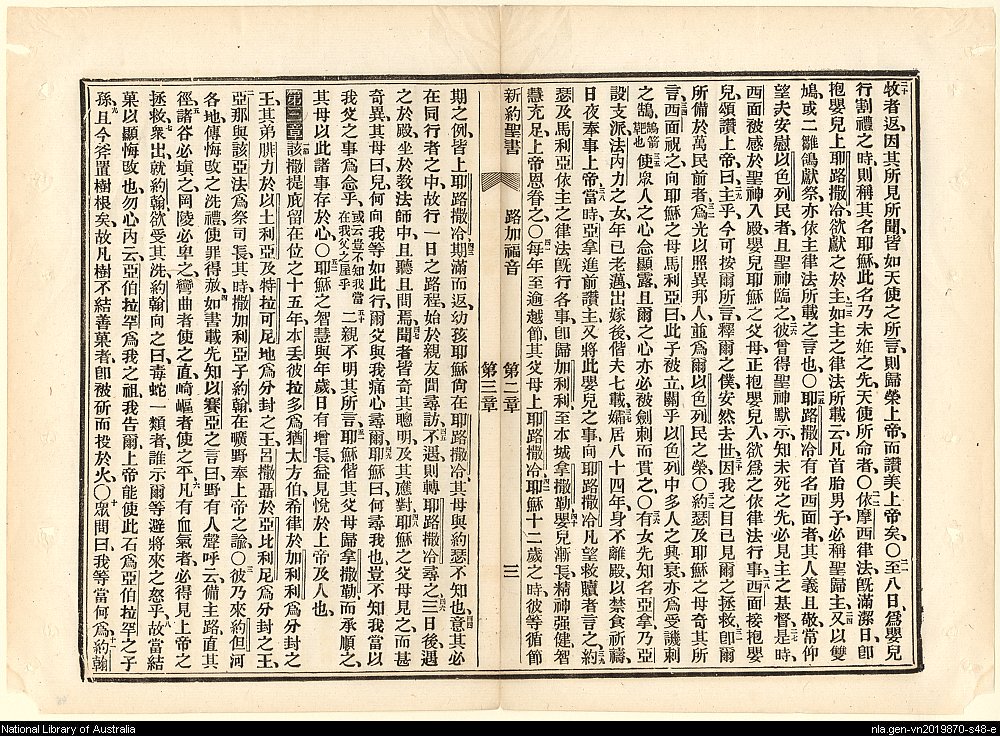 牧者返、因其所見所聞、皆如天使之所言、則歸榮上帝、而讚美上帝矣、〇至八日、爲嬰兒
行割禮之時、則稱其名耶穌、此名乃未姙之先、天使所命者、〇依摩西律法、旣滿潔日、卽
抱嬰兒上耶路撒冷、欲獻之於主、如主之律法所載云、凡首胎男子、必稱聖歸主、又以雙
鳩、或二雛鴿獻祭、亦依主律法所載之言也、〇耶路撒冷有名西面者、其人義且敬、常仰
望夫安慰以色列民者、且聖神臨之、彼曾得聖神默示、知未死之先、必見主之基督、是時、
西面被感於聖神入殿、嬰兒耶穌之父母、正抱嬰兒入、欲爲之依律法行事、西面接抱嬰
兒、頌讚上帝曰、主乎、今可按爾所言、釋爾之僕、安然去世、因我之目已見爾之拯救、卽爾
所備於萬民前者、爲光以照異邦人、並爲爾以色列民之榮、〇約瑟及耶穌之母奇其所
言、西面祝之、向耶穌之母馬利亞曰、此子被立、關乎以色列中多人之興衰、亦爲受譏刺
之鵠、鵠箭靶也使眾人之心念顯露、且爾之心、亦必被劍刺而貫之、〇有女先知名亞拿、乃亞
設支派法內力之女、年已老邁、出嫁後、偕夫七載、孀居八十四年、身不離殿、以禁食祈禱、
日夜奉事上帝、當時亞拿進前讚主、又將此嬰兒之事、向耶路撒冷凡望救贖者言之、約
瑟及馬利亞依主之律法、旣行各事、卽歸加利利、至本城拿撒勒、嬰兒漸長、精神强健、智
慧充足、上帝恩眷之、〇每年至逾越節、其父母上耶路撒冷、耶穌十二歲之時、彼等循節
新約聖書 路加福音 第二章 第三章 三
期之例、皆上耶路撒冷、期滿而返、幼孩耶穌尙在耶路撒冷、其母與約瑟不知也、意其必
在同行者之中、故行一日之路程、始於親友間尋訪、不遇、則轉耶路撒冷尋之、三日後、遇
之於殿、坐於教法師中、且聽且問焉、聞者皆奇其聰明、及其應對、耶穌之父母見之而甚
奇異、其母曰、兒、何向我等如此行、爾父與我痛心尋爾、耶穌曰、何尋我也、豈不知我當以
我父之事爲念乎、或云豈不知我當在我父之屋乎二親不明其所言、耶穌偕其父母歸拿撒勒、而承順之、
其母以此諸事存於心、〇耶穌之智慧與年歲日有增長、益見悅於上帝及人也、
第三章該撒提庇留在位之十五年、本丟彼拉多爲猶太方伯、希律於加利利爲分封之
王、其弟腓力於以土利亞及特拉可尼地爲分封之王、呂撒聶於亞比利尼爲分封之王、
亞那與該亞法爲祭司長、其時撒加利亞子約翰在曠野奉上帝之諭、〇彼乃來約但河
各地、傳悔改之洗禮、使罪得赦、如書載先知以賽亞之言曰、野有人聲呼云、備主路、直其
徑、諸谷必塡之、岡陵必卑之、彎曲者使之直、崎嶇者使之平、凡有血氣者、必得見上帝之
拯救、衆出就約翰、欲受其洗、約翰向之曰、毒蛇一類者、誰示爾等避將來之怒乎、故當結
菓以顯悔改也、勿心內云、亞伯拉罕爲我之祖、我告爾、上帝能使此石爲亞伯拉罕之子
孫、且今斧置樹根矣、故凡樹不結善菓者、卽被斫而投於火、〇眾問曰、我等當何爲、約翰
National Library of Australia
nla.gen-vn2019870-s48-e